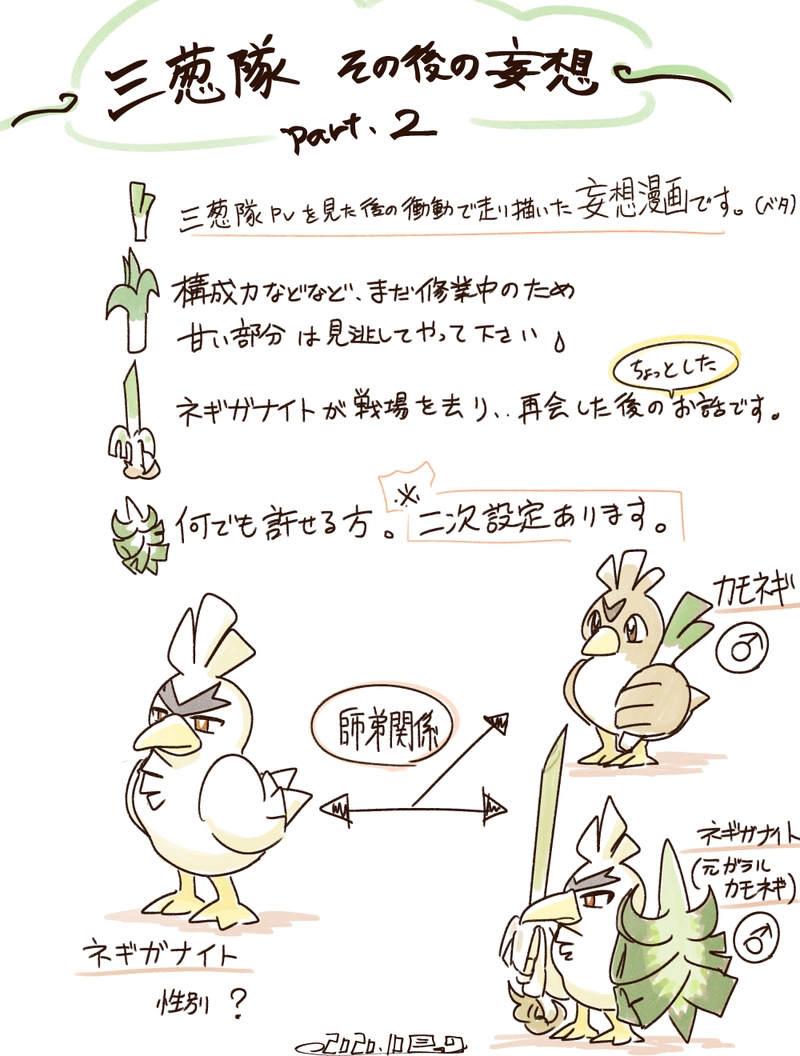 三葱隊 その後の妄想
part.2
三葱隊PVを見た後の衝動で走り描いた妄想漫画です。(ベタ)
構成力などなど、まだ修業中のため
甘い部分は見逃してやって下さい
ちょっとした
ネギガナイトが戦場を去り、再会した後のお話です。
何でも許せる方。
※二次設定あります。
カモネギ
♂
師弟関係
ネギガナイト
(元ガラル
カモネギ)
♂
ネギガナイト
性別?
2020.10